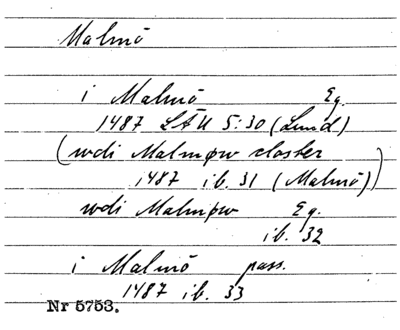 Malmö
i Malmö Eg.
1487 LÄU 5:30 (Lund)
(wdi Malmøw closter
1487 ib. 31 (Malmö))
wdi Malmøw Eg.
ib. 32
i Malmö pass.
1487 ib. 33
Nr 5753.